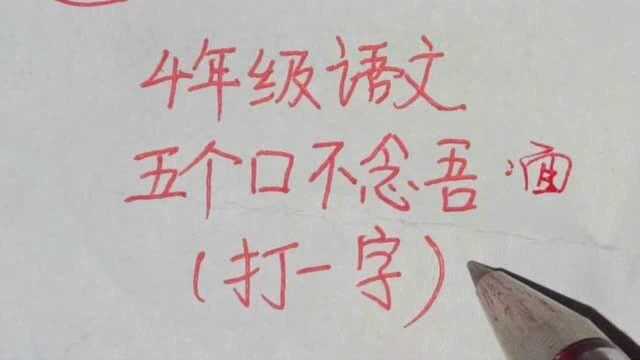 4年级语文
五个口不念吾
(打一字)